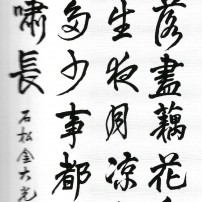 落盡藕花
生夜月凉
多少事都
嘯長
石松金大